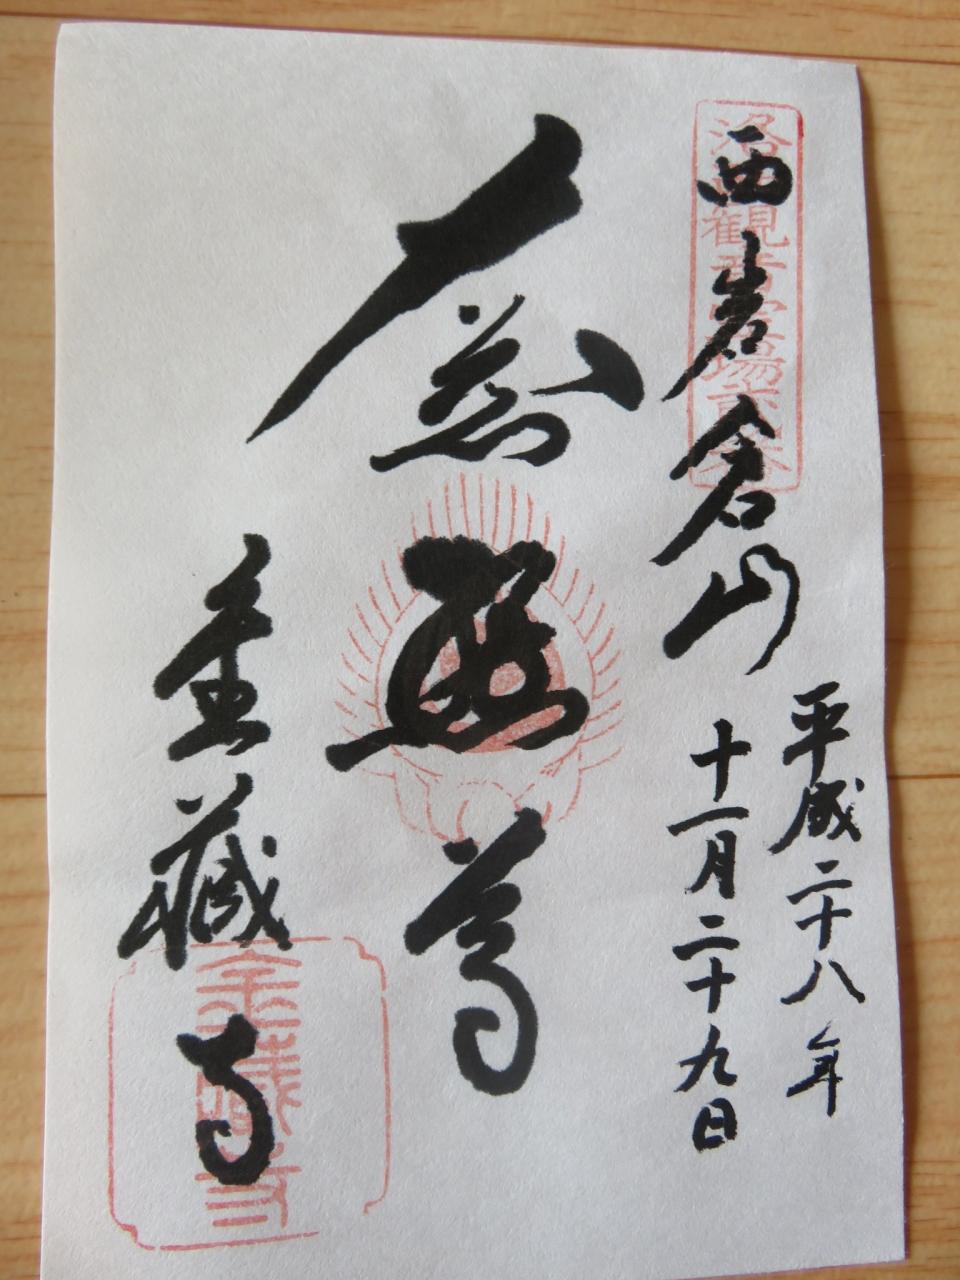 洛西観音霊場第弐番
西岩倉山
平成二十八年
十一月二十九日
尊
金藏寺
金藏寺